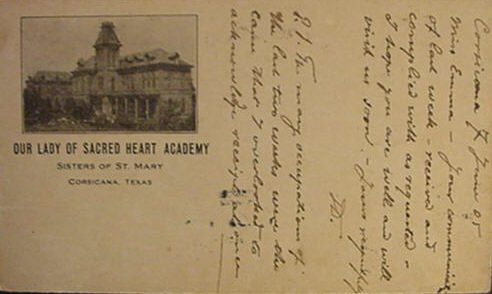 OUR LADY OF SACRED HEART ACADEMY
SISTERS OF ST. MARY
CORSICANA, TEXAS
Corsicana 7 June 05
Miss Emma - Your
of last week - received and
complied with as requested -
I hope you are well and will
visit us soon. - Yours
M.
P.S. The many occupations of
the last two weeks were the
cause that I overlooked to
acknowledge receipt